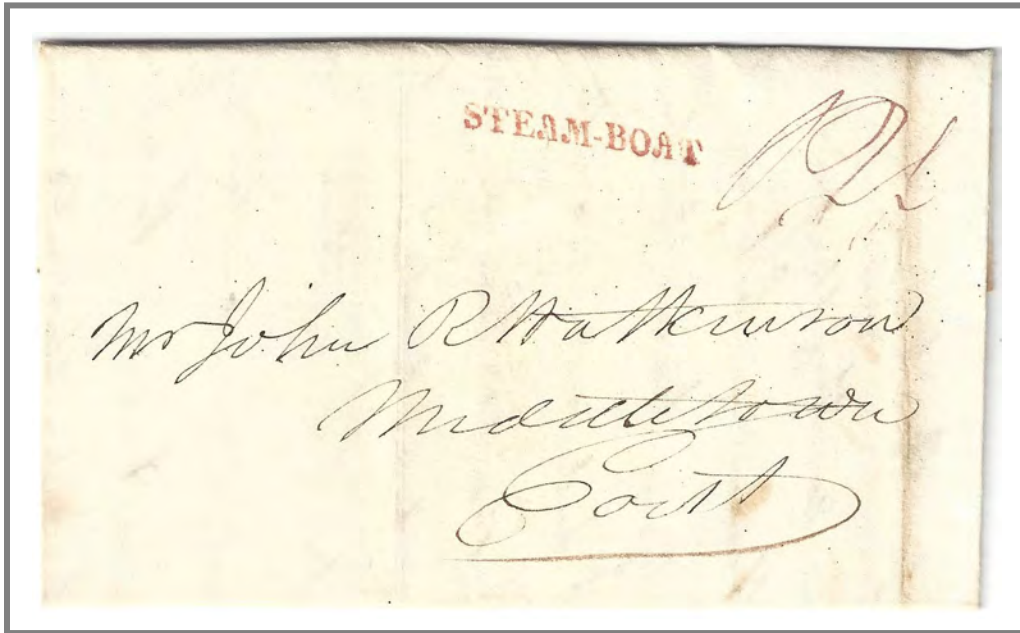 STEAM-BOAT
Mr John R Watkinson
Middletown